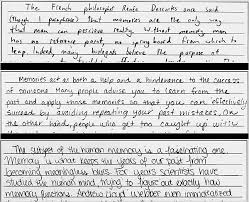 The French philosopher René Descartes once said
(though I paraphrase) that memories are the only way
that man can perceive reality. Without memory man
has no reference point, no springboard from which to
leap. Indeed, many believe the purpose of
Memories act as both a help and a hinderence to the success
of someone. Many people advise you to learn from the
past and apply those memories so that you can effectively
succeed by avoiding repeating your past mistakes. On
the other hand, people who get too caught up with
The subject of the human memory is a fascinating one.
Memory is what keeps the years of our past from
becoming meaningless blurs. For years scientists have
studied the human mind, trying to figure out exactly how
memory functions. Andrew Lloyd Webber even immortalized